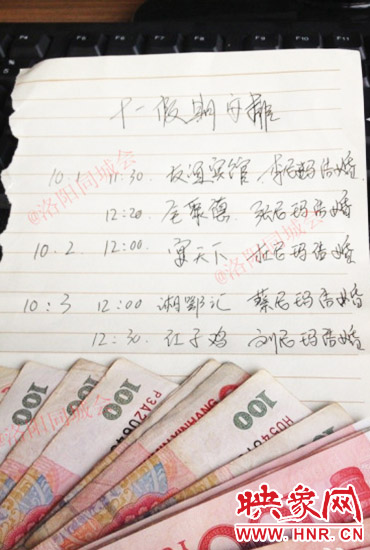 十一假期安排
10.1 11:30. 友谊宾馆 李尼玛结婚
12:20. 全聚德 张尼玛结婚
10.2 12:00. 宴天下 杜尼玛结婚
10.3 12:00 湘鄂汇 蔡尼玛结婚
12:30. 红子鸡 刘尼玛结婚
@洛阳同城会
@洛阳同城会
@洛阳同城会
100
100
100
100
P3A20640
HU054
映象网
WWW.HNR.CN